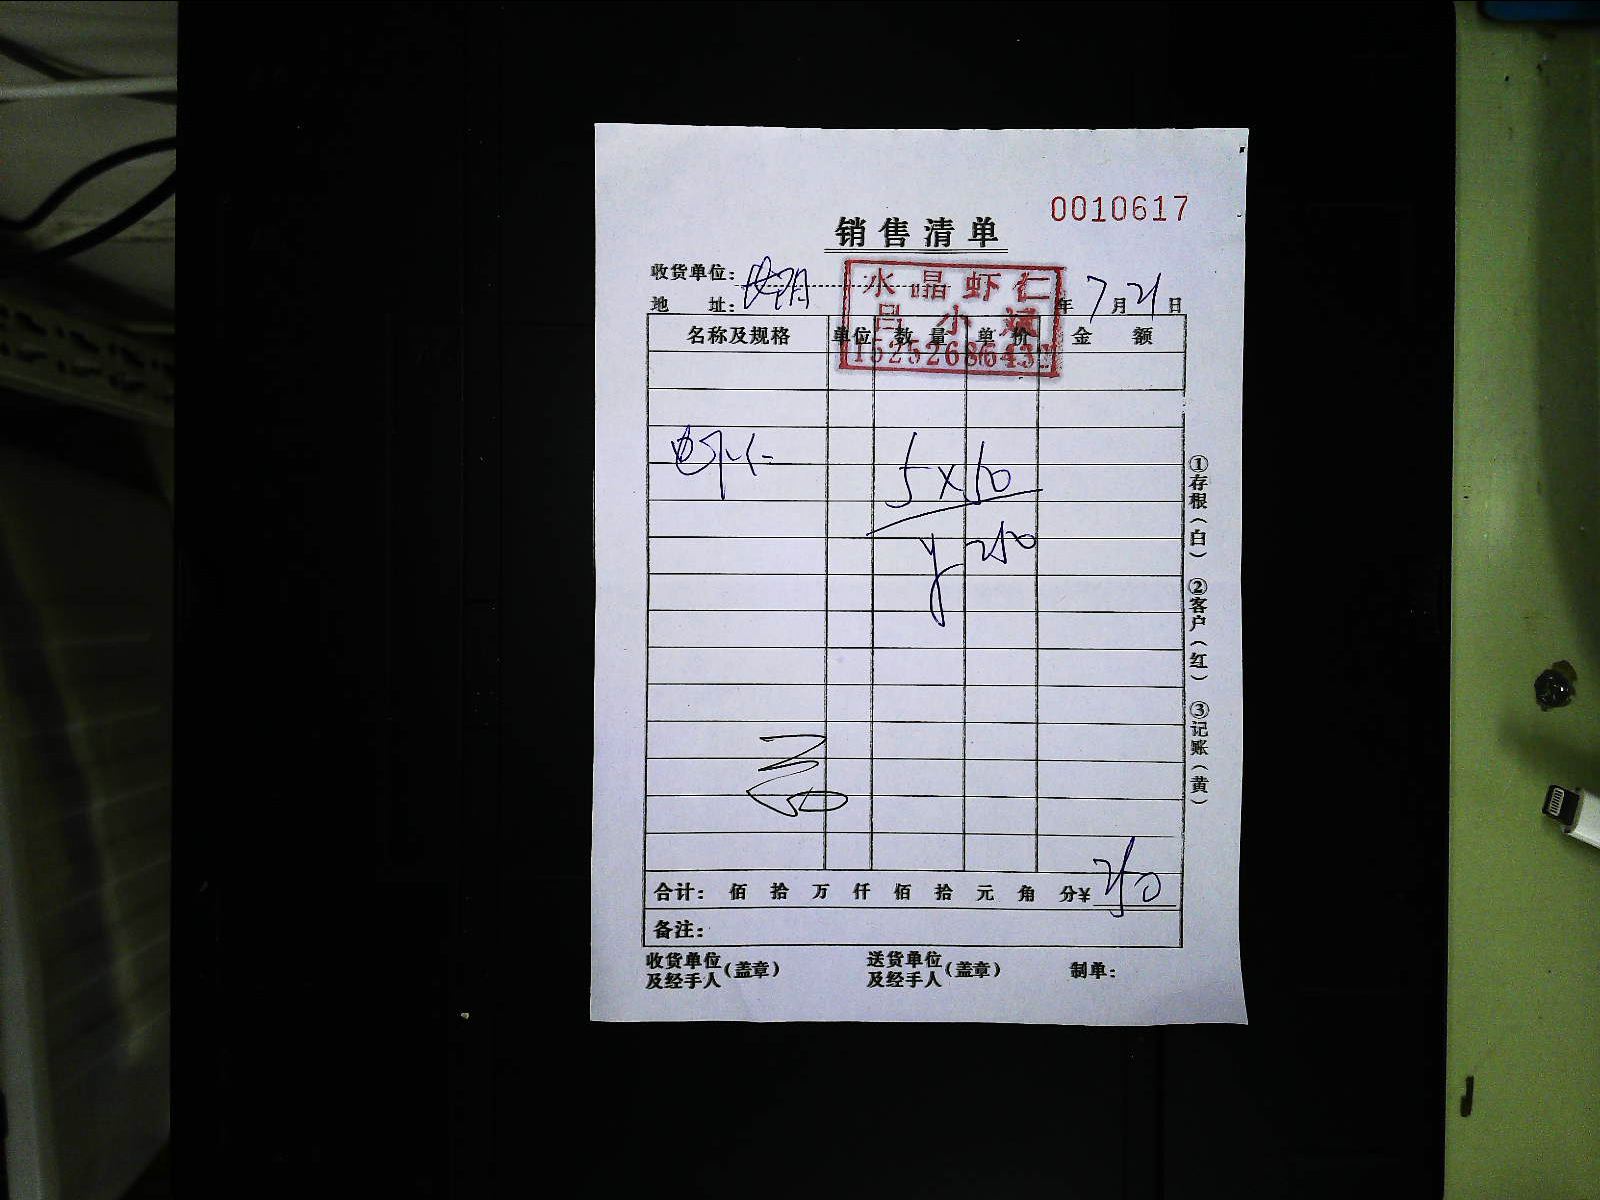 0010617
销售清单
收货单位:
水晶虾仁
地 址: 年 7 月 21 日
吕小斌
名称及规格 单位 数量 单价 金额
虾仁 5×50
¥250
合计: 佰 拾 万 仟 佰 拾 元 角 分¥ 250
备注:
收货单位及经手人(盖章) 送货单位及经手人(盖章) 制单:
①存根(白) ②客户(红) ③记账(黄)